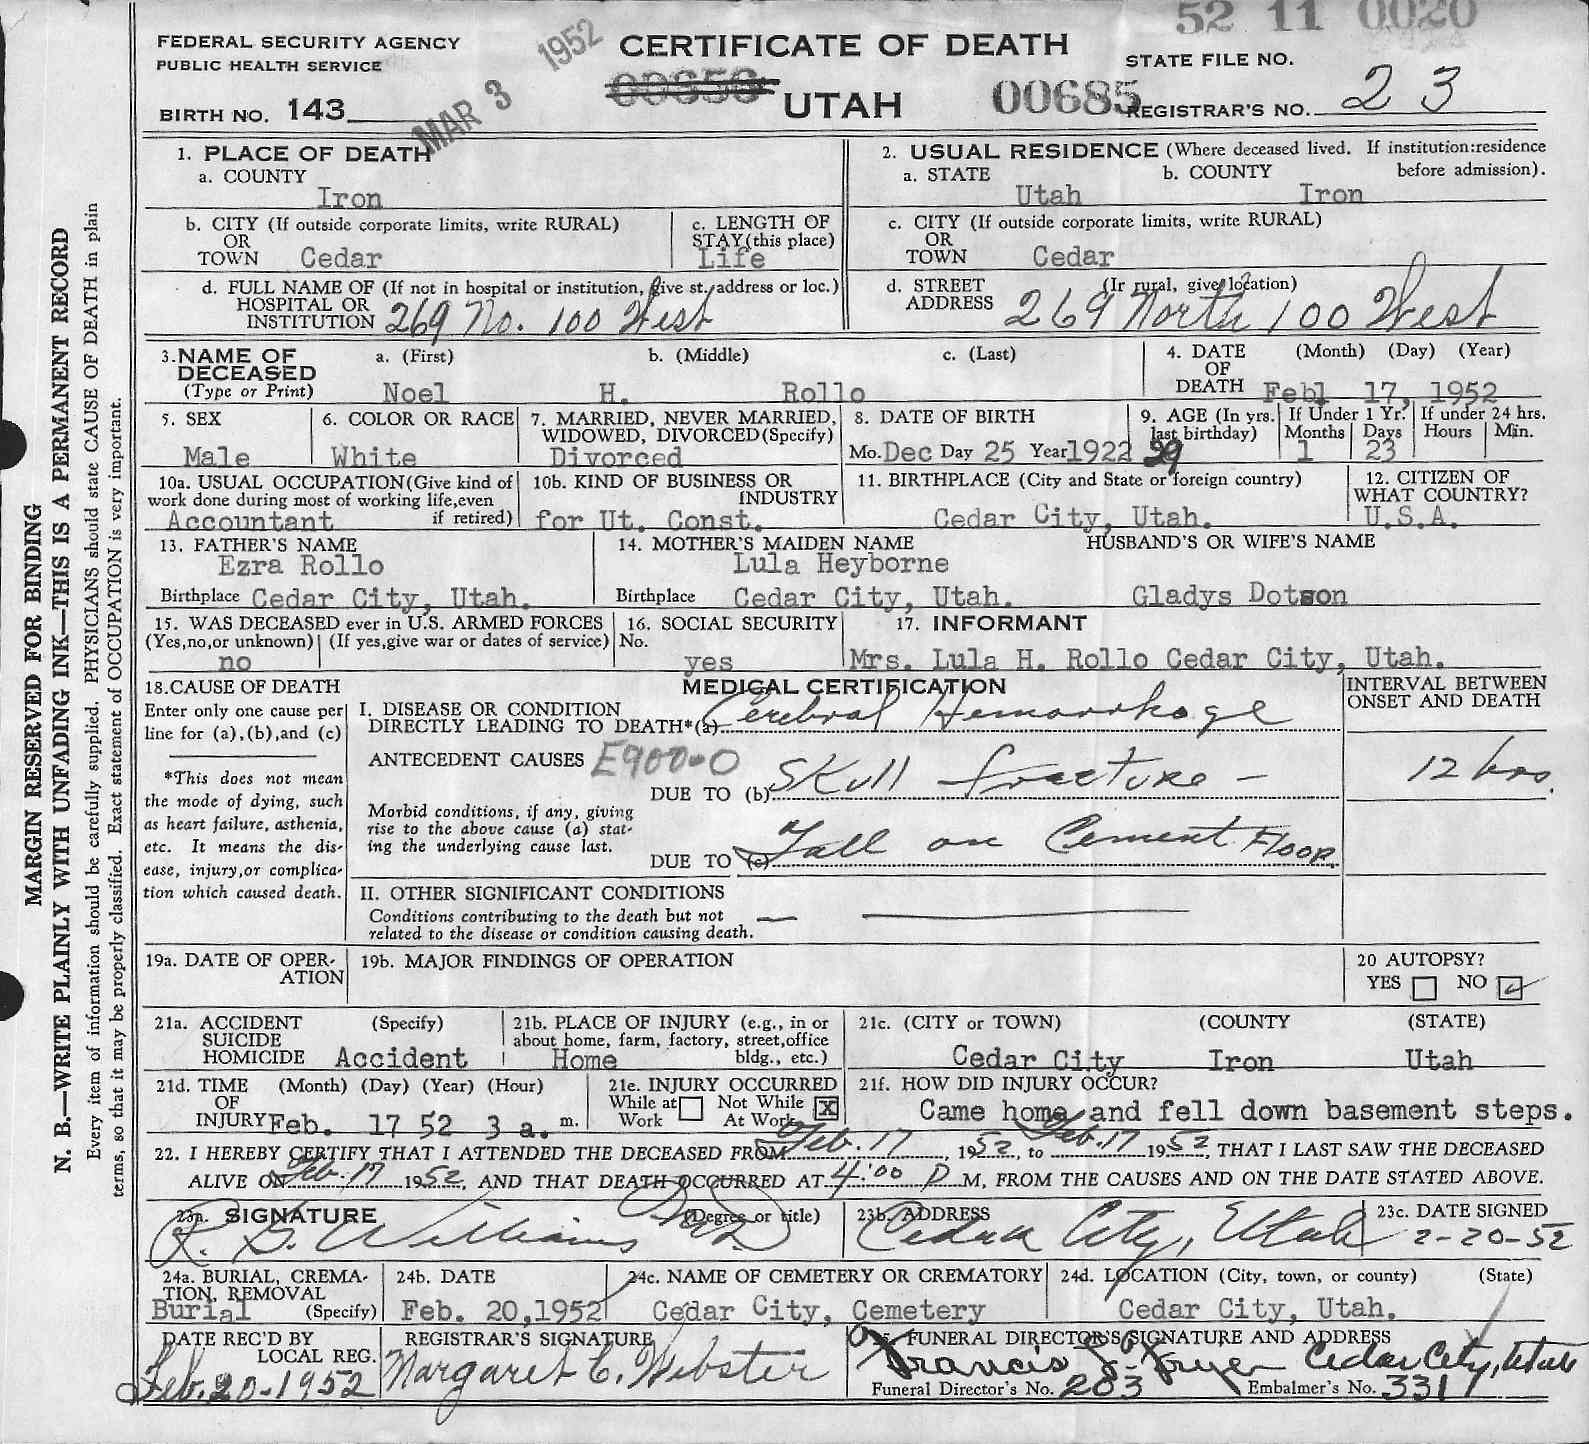 52 11 0020
FEDERAL SECURITY AGENCY
PUBLIC HEALTH SERVICE
MAR 3 1952
CERTIFICATE OF DEATH
UTAH
00656
00685
STATE FILE NO.
BIRTH NO. 143
REGISTRAR'S NO. 23
1. PLACE OF DEATH
a. COUNTY
Iron
2. USUAL RESIDENCE (Where deceased lived. If institution:residence before admission).
a. STATE Utah b. COUNTY Iron
b. CITY (If outside corporate limits, write RURAL)
OR
TOWN Cedar
c. LENGTH OF
STAY(this place)
Life
c. CITY (If outside corporate limits, write RURAL)
OR
TOWN Cedar
d. FULL NAME OF (If not in hospital or institution, give st. address or loc.)
HOSPITAL OR
INSTITUTION 269 No. 100 West
d. STREET (If rural, give location)
ADDRESS 269 North 100 West
3. NAME OF DECEASED
(Type or Print)
a. (First) b. (Middle) c. (Last)
Noel H. Rollo
4. DATE OF DEATH (Month) (Day) (Year)
Feb1 17, 1952
5. SEX
Male
6. COLOR OR RACE
White
7. MARRIED, NEVER MARRIED,
WIDOWED, DIVORCED(Specify)
Divorced
8. DATE OF BIRTH
Mo. Dec Day 25 Year 1922
9. AGE (In yrs. last birthday)
29
If Under 1 Yr. If under 24 hrs.
Months Days Hours Min.
1 23
10a. USUAL OCCUPATION(Give kind of
work done during most of working life,even
if retired)
Accountant
10b. KIND OF BUSINESS OR
INDUSTRY
for Ut. Const.
11. BIRTHPLACE (City and State or foreign country)
Cedar City, Utah.
12. CITIZEN OF
WHAT COUNTRY?
U.S.A.
13. FATHER'S NAME
Ezra Rollo
Birthplace Cedar City, Utah.
14. MOTHER'S MAIDEN NAME
Lula Heyborne
Birthplace Cedar City, Utah.
HUSBAND'S OR WIFE'S NAME
Gladys Dotson
15. WAS DECEASED ever in U.S. ARMED FORCES
(Yes,no,or unknown) (If yes,give war or dates of service)
no
16. SOCIAL SECURITY
No.
yes
17. INFORMANT
Mrs. Lula H. Rollo Cedar City, Utah.
18. CAUSE OF DEATH
Enter only one cause per
line for (a),(b),and (c)
*This does not mean
the mode of dying, such
as heart failure, asthenia,
etc. It means the dis-
ease, injury,or complica-
tion which caused death.
MEDICAL CERTIFICATION
I. DISEASE OR CONDITION
DIRECTLY LEADING TO DEATH*(a) Cerebral Hemorrhage
ANTECEDENT CAUSES E900-0
DUE TO (b) Skull fracture -
Morbid conditions, if any, giving
rise to the above cause (a) stat-
ing the underlying cause last.
DUE TO (c) Fall on Cement Floor.
INTERVAL BETWEEN
ONSET AND DEATH
12 hrs.
II. OTHER SIGNIFICANT CONDITIONS
Conditions contributing to the death but not
related to the disease or condition causing death.
19a. DATE OF OPER-
ATION
19b. MAJOR FINDINGS OF OPERATION
20 AUTOPSY?
YES NO
21a. ACCIDENT (Specify)
SUICIDE
HOMICIDE Accident
21b. PLACE OF INJURY (e.g., in or
about home, farm, factory, street,office
bldg., etc.)
Home
21c. (CITY or TOWN) (COUNTY (STATE)
Cedar City Iron Utah
21d. TIME (Month) (Day) (Year) (Hour)
OF
INJURY Feb. 17 52 3 a. m.
21e. INJURY OCCURRED
While at Work Not While At Work X
21f. HOW DID INJURY OCCUR?
Came home and fell down basement steps.
22. I HEREBY CERTIFY THAT I ATTENDED THE DECEASED FROM Feb. 17, 1952, to Feb. 17 1952, THAT I LAST SAW THE DECEASED
ALIVE ON Feb. 17 1952, AND THAT DEATH OCCURRED AT 4:00 P M, FROM THE CAUSES AND ON THE DATE STATED ABOVE.
23a. SIGNATURE (Degree or title)
R. G. Williams MD.
23b. ADDRESS
Cedar City, Utah
23c. DATE SIGNED
2-20-52
24a. BURIAL, CREMA-
TION, REMOVAL
(Specify)
Burial
24b. DATE
Feb. 20,1952
24c. NAME OF CEMETERY OR CREMATORY
Cedar City, Cemetery
24d. LOCATION (City, town, or county) (State)
Cedar City, Utah.
DATE REC'D BY
LOCAL REG.
Feb. 20-1952
REGISTRAR'S SIGNATURE
Margaret C. Webster
25. FUNERAL DIRECTOR'S SIGNATURE AND ADDRESS
Francis Fryer Cedar City, Utah
Funeral Director's No. 203 Embalmer's No. 331
MARGIN RESERVED FOR BINDING
N. B.—WRITE PLAINLY WITH UNFADING INK—THIS IS A PERMANENT RECORD
Every item of information should be carefully supplied. PHYSICIANS should state CAUSE OF DEATH in plain
terms, so that it may be properly classified. Exact statement of OCCUPATION is very important.